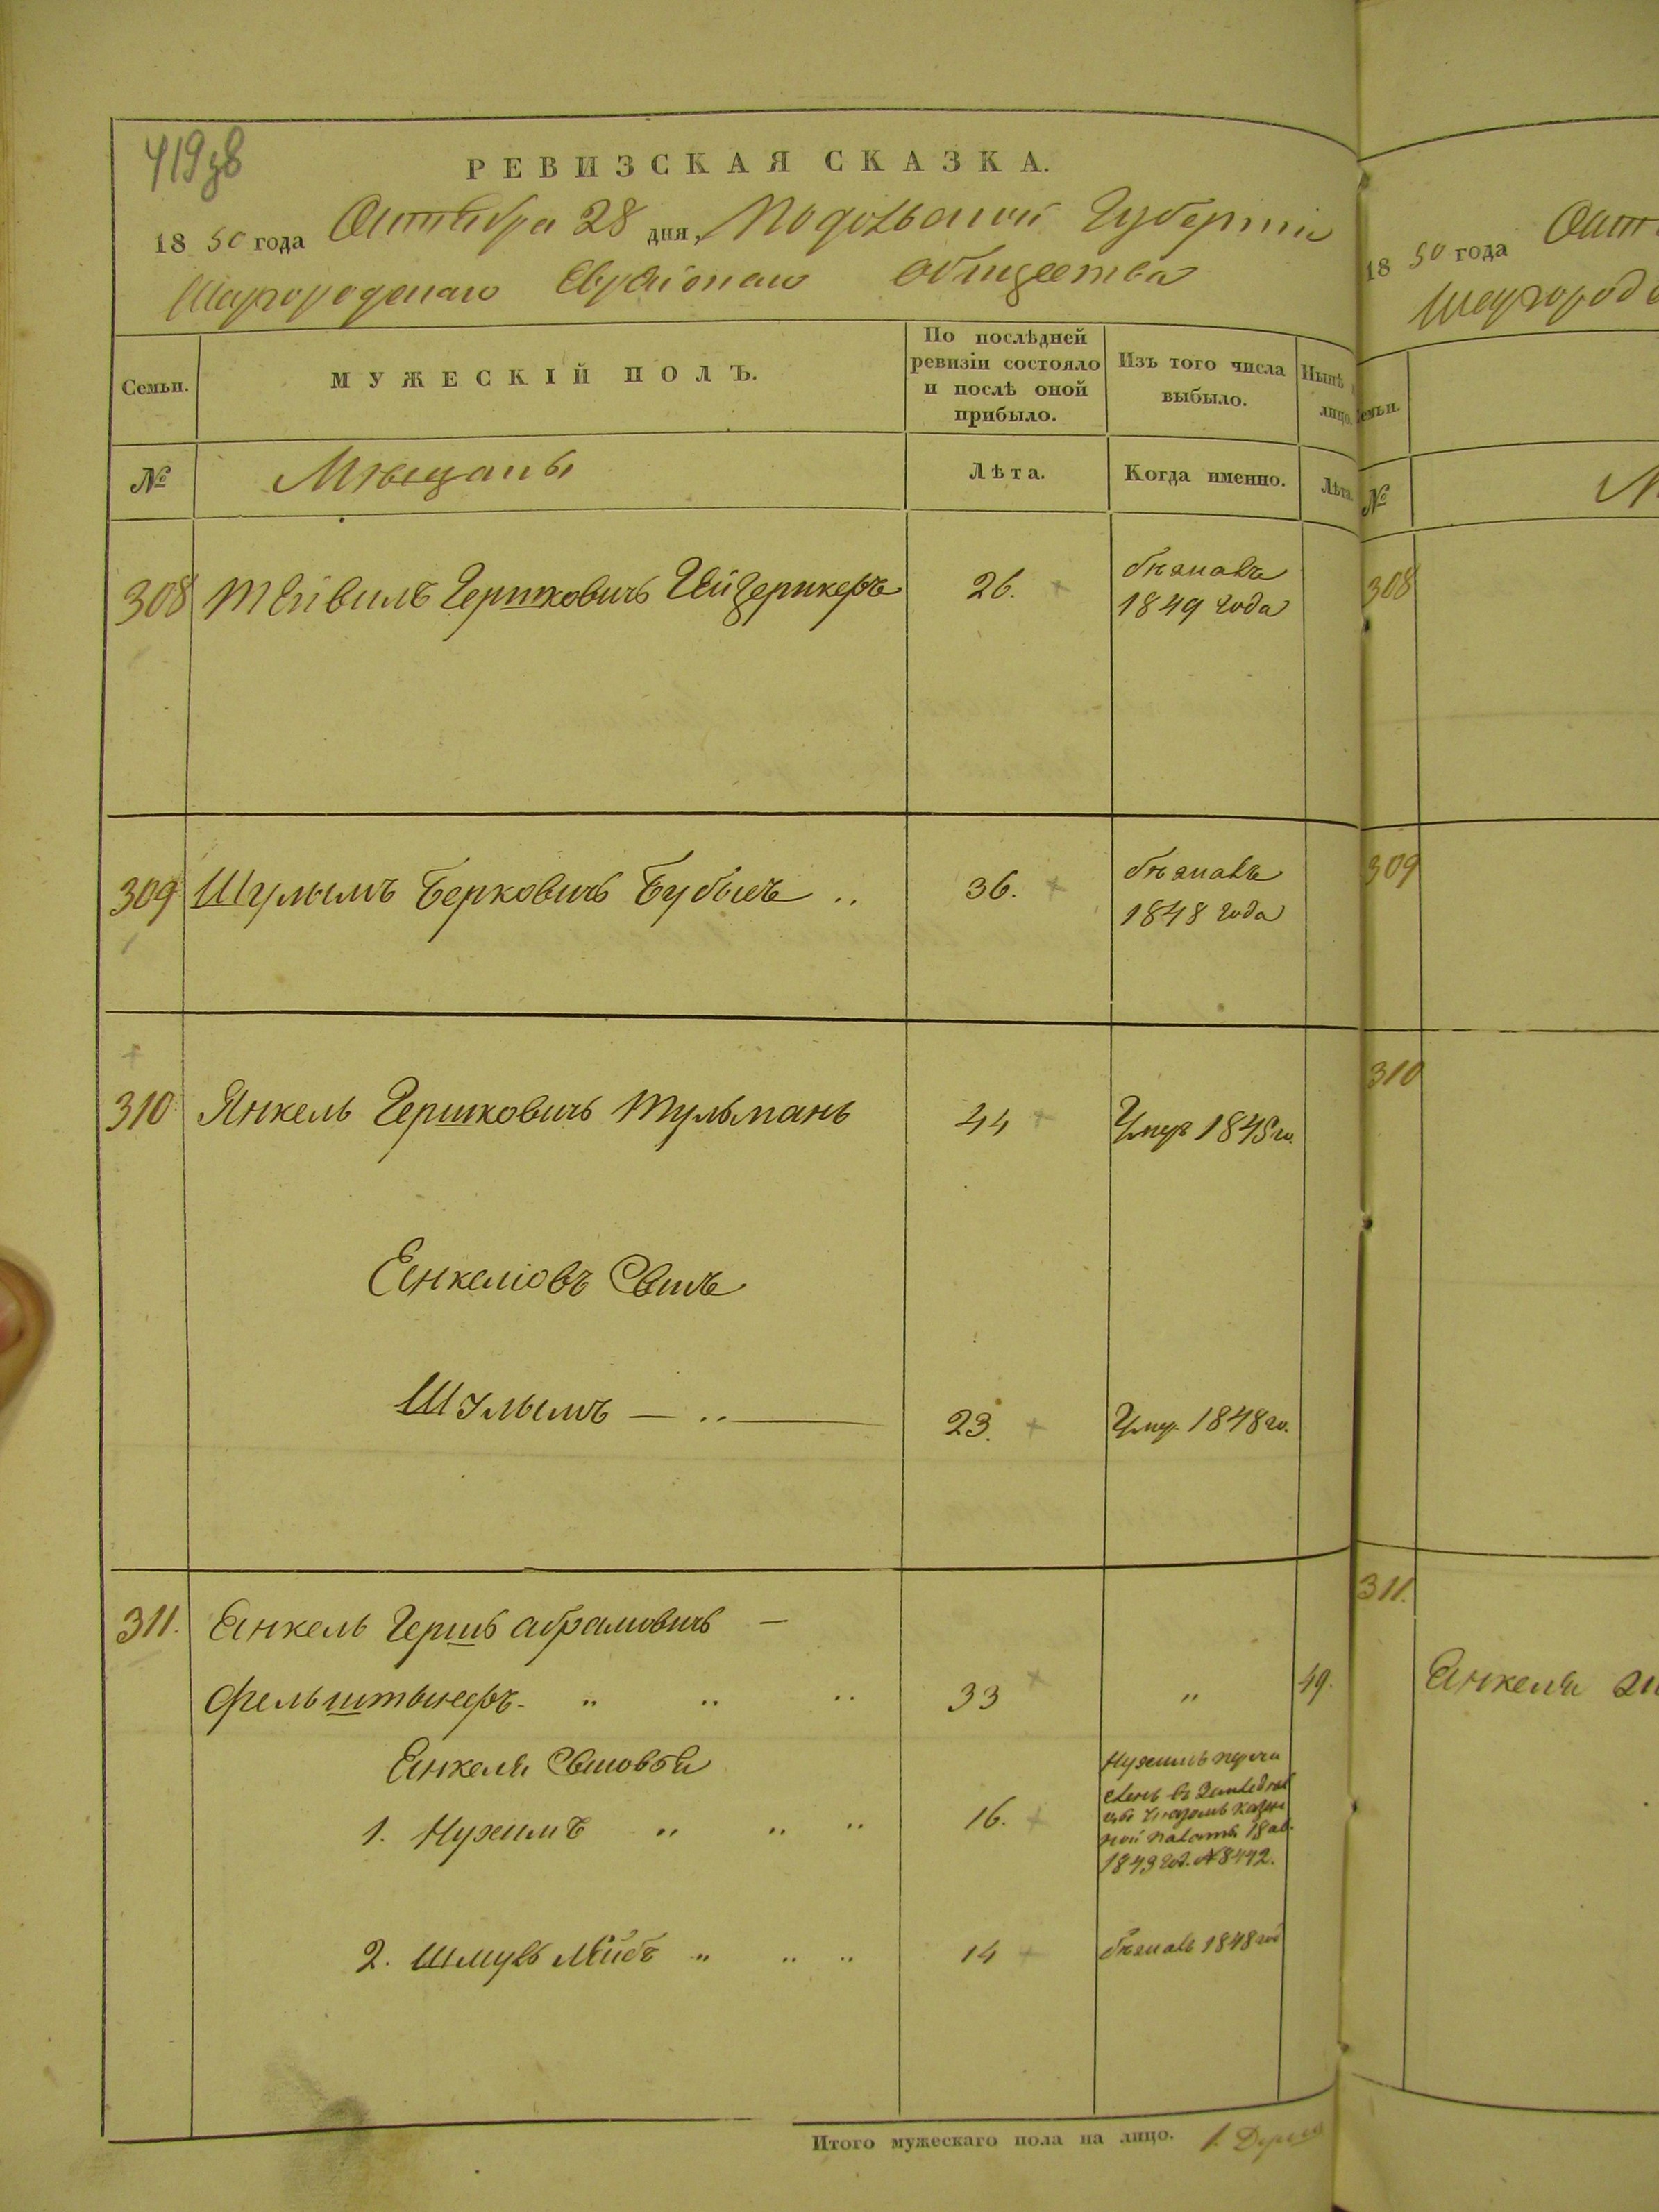 РЕВИЗСКАЯ СКАЗКА.
18 50 года Октября 28 дня, Подольской Губерніи
Шаргородскаго Еврейскаго общества
Семьи.
МУЖЕСКІЙ ПОЛЪ.
По послѣдней
ревизіи состояло
и послѣ оной
прибыло.
Изъ того числа
выбыло.
Нынѣ
лицо.
№
Мѣщаны
Лѣта.
Когда именно.
Лѣта.
308 Лейвилъ Гершковичъ 26. бѣжалъ
1849 года
309 Шулымъ Берковичъ 36. бѣжалъ
1848 года
310 Янкель Гершковичъ Тульманъ 44 Умеръ 1848 го.
Еянкеліовъ Сынъ
Шулымъ — .. — 23. Умер. 1848 го.
311. Еянкель Гершъ Абрамовичъ —
Фельштынеръ. " .. .. 33 " 49.
Еянкеля Сыновья
1. Нухимъ " .. .. 16. Нухимъ перечи
сленъ въ Земледѣль
цы Указомъ Казен
ной палаты 18 ав.
1849 год. №8442.
2. Шмуль Лейбъ " .. .. 14 бѣжалъ 1848 год
Итого мужескаго пола на лицо. 1.
18 50 года Окт
Шаргород
Семьи.
№
308
309
310
311.
Еянкеля